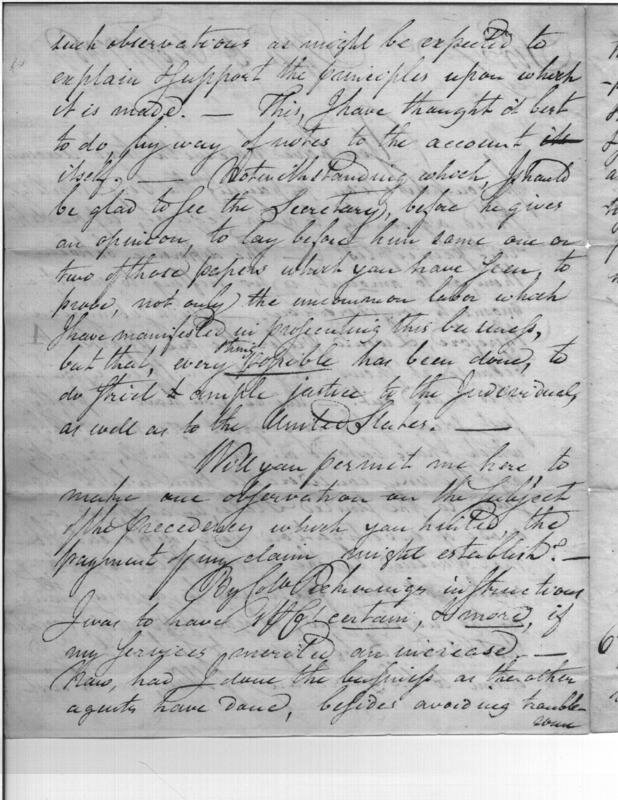 such observations as might be expected to
explain & support the principles upon which
it is made. — This, I have thought it best
to do, by way of notes to the account, its
itself. — Notwithstanding which, I should
be glad to see the Secretary, before he gives
an opinion, to lay before him some one or
two of those papers which you have seen, to
prove, not only the uncommon labor which
I have manifested in prosecuting this business,
but that, every thing possible has been done, to
do strict & ample justice to the Individual,
as well as to the United States. —
Will you permit me here, to
make one observation on the subject
of the precedency which you hinted, the
payment of my claim might establish? —
By Colo Pickering's instructions
I was to have certain, & more, if
my Services merited an increase. —
Now, had I done the business as the other
agents have done, besides avoiding trouble-
some